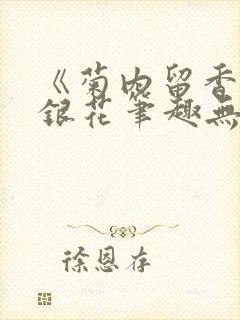 《菊内留香
銀花筆趣無
徐恩存